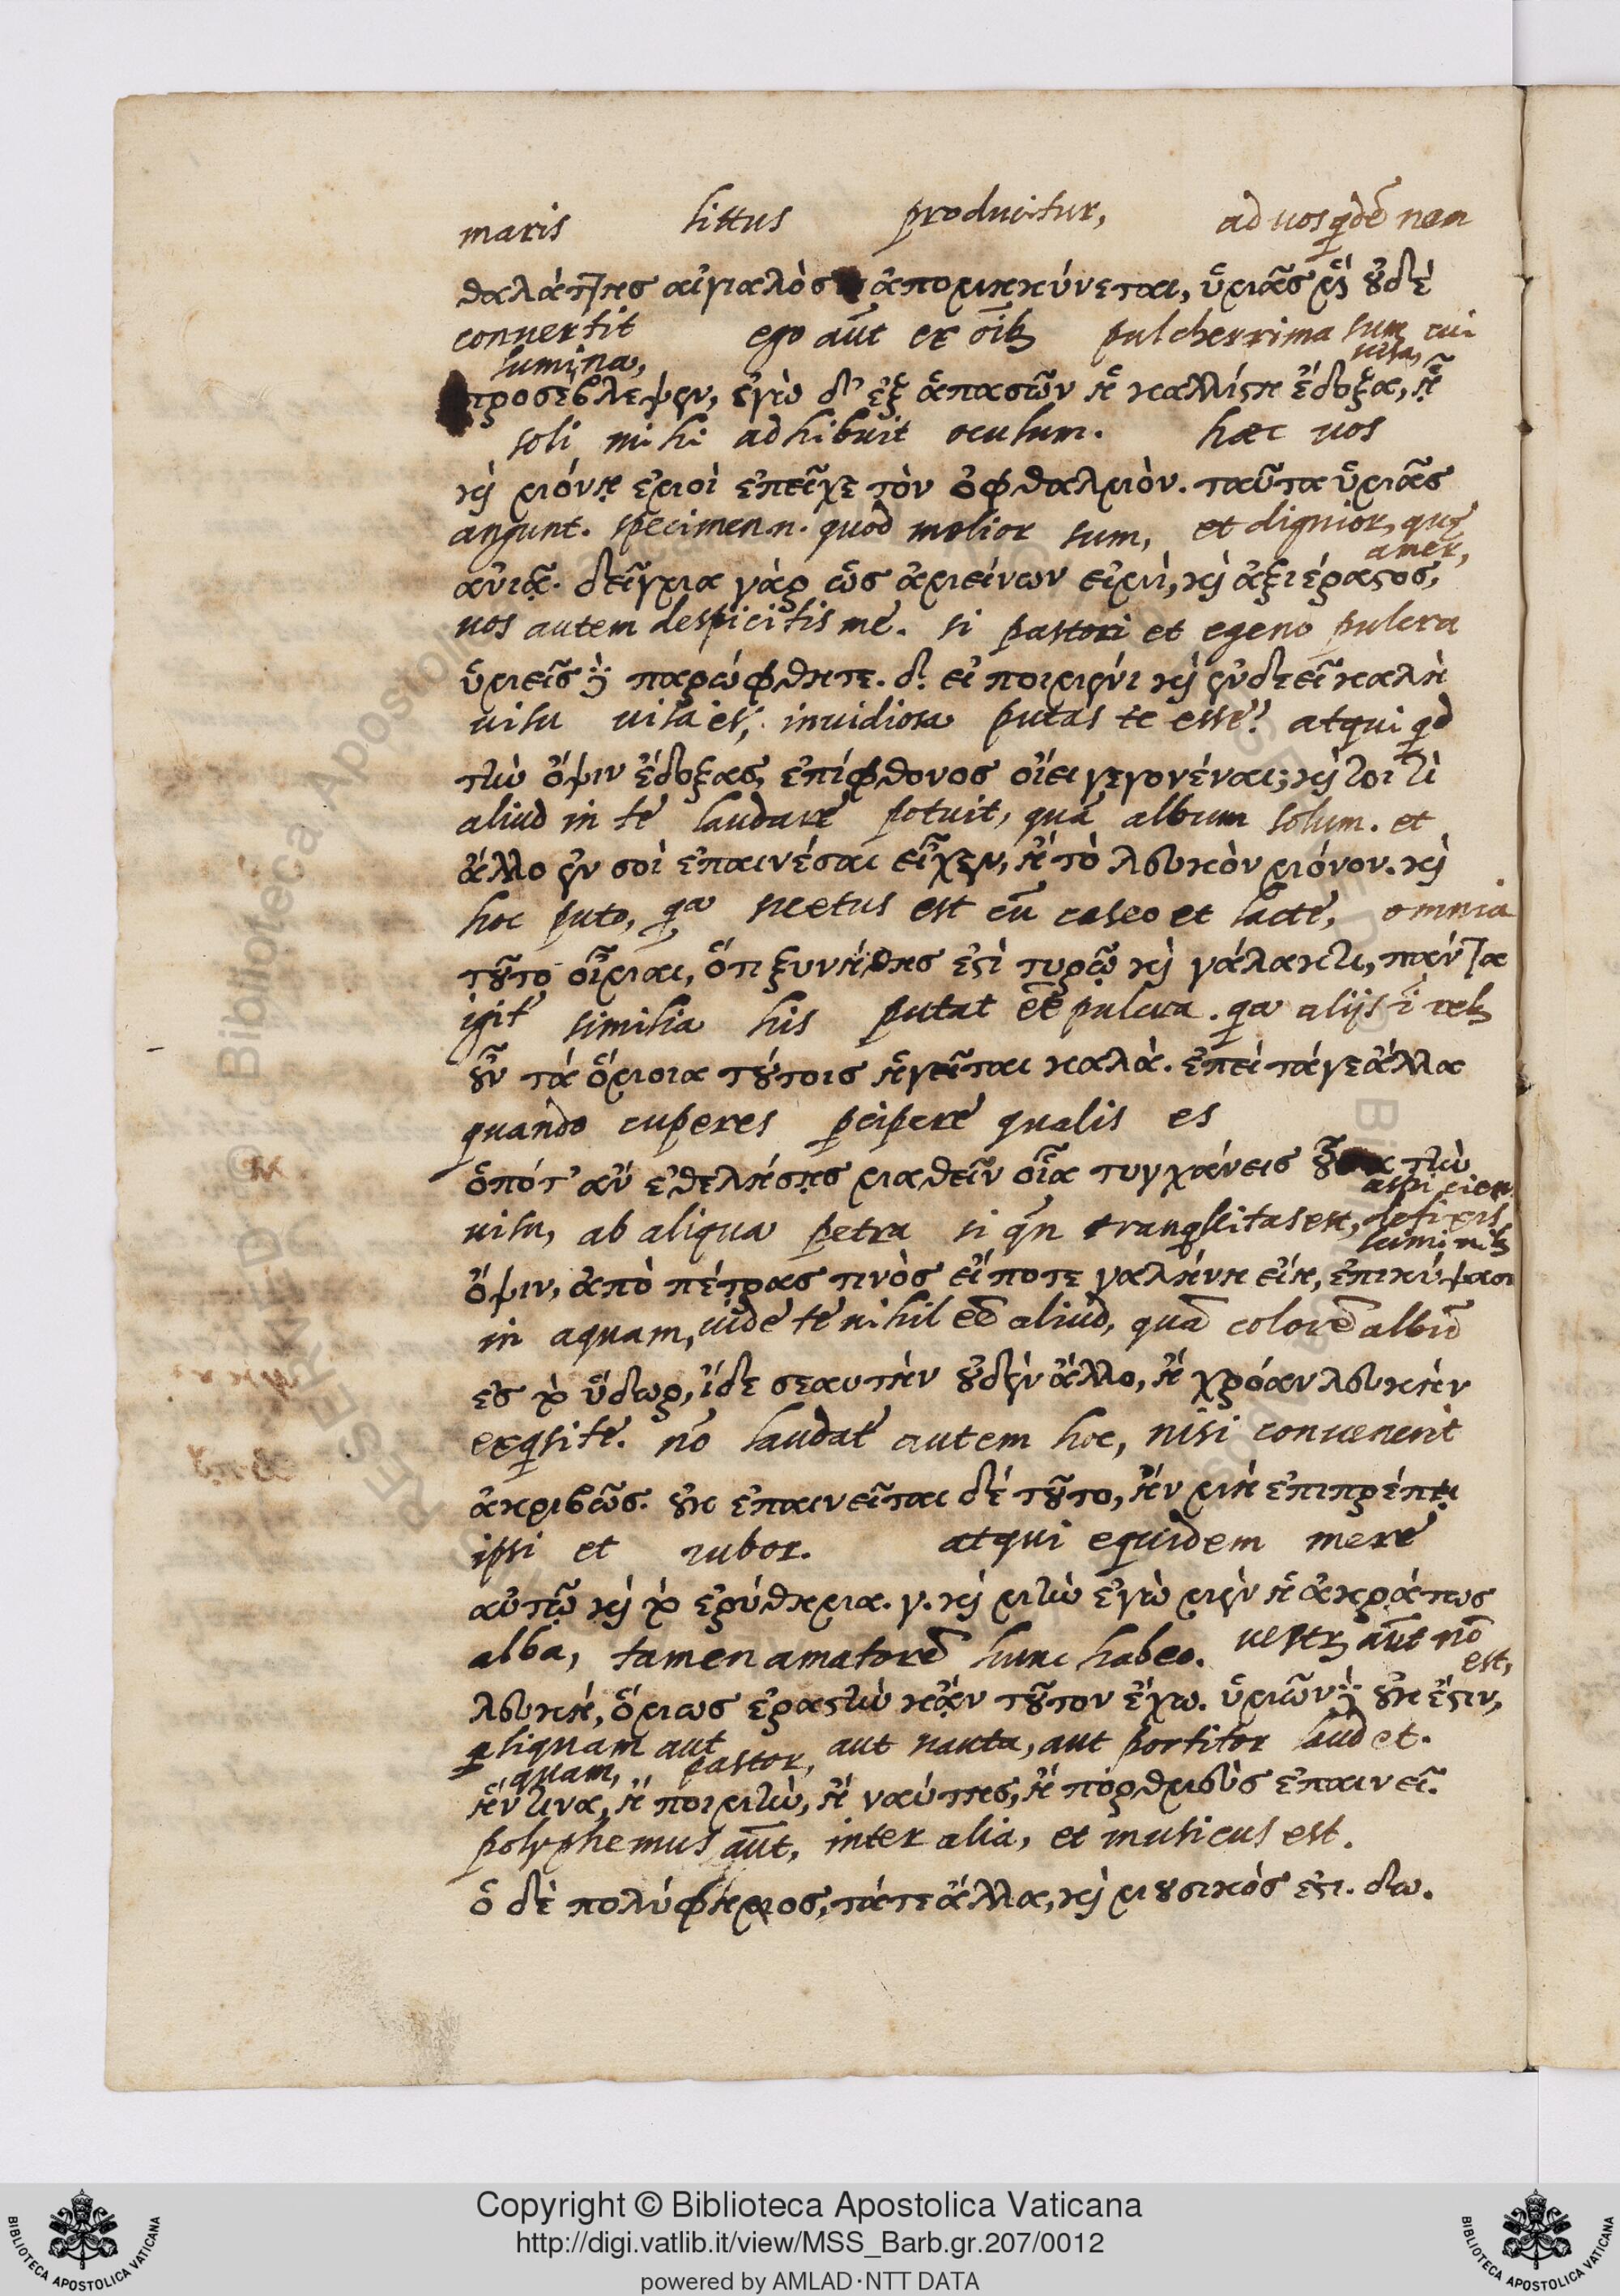 maris littus producitur, ad uos qdē nem
θαλάττης αἰγιαλὸς ἀπομηκύνεται, ὑμᾶς μὲν οὐδὲ
conuertit ego aūt ex oīb pulcherrima sum cui
lumina, uisa,
προσέβλεψεν, ἐγὼ δ' ἐξ ἁπασῶν ἡ καλλίστη ἔδοξα, ᾗ
soli mihi adhibuit oculum. hæc uos
καὶ μόνῃ ἐμοὶ ἐπεῖχε τὸν ὀφθαλμὸν. ταῦτα ὑμᾶς
angunt. specimen.n. quod melior sum, et dignior, que
amer,
ἀνιᾷ. δεῖγμα γὰρ ὡς ἀμείνων εἰμὶ, καὶ ἀξιέραστος,
uos autem despicitis me. si pastori et egeno pulcra
ὑμεῖς δὲ παρώφθητε. δ. εἰ ποιμένι καὶ ἐνδεεῖ καλὴ
uisu uisa es, inuidiosa putas te esse? atqui qd
τὴν ὄψιν ἔδοξας, ἐπίφθονος οἴει γεγονέναι; καίτοι τί
aliud in te laudare potuit, quā album solum. et
ἄλλο ἐν σοὶ ἐπαινέσαι εἶχεν, ἢ τὸ λευκὸν μόνον. καὶ
hoc puto, qa suetus est cū caseo et lacte, omnia
τοῦτο οἶμαι, ὅτι ξυνήθης ἐστὶ τυρῷ καὶ γάλακτι, πάντα
igit similia his putat eē pulcra. qa alijs ī reb
οὖν τὰ ὅμοια τούτοις ἡγεῖται καλὰ. ἐπεὶ τά γε ἄλλα
quando cuperes pcipere qualis es
ὁπότ' ἂν ἐθελήσῃς μαθεῖν οἵα τυγχάνεις οὖσα τὴν
aspicien
uisu, ab aliqua petra si qn tranqlitas est, defixis
luminib
ὄψιν, ἀπὸ πέτρας τινὸς εἴποτε γαλήνη εἴη, ἐπικύψασα
in aquam, uide te nihil eē aliud, quā colorē albū
ἐς τὸ ὕδωρ, ἰδὲ σεαυτὴν οὐδὲν ἄλλο, ἢ χρόαν λευκὴν
exqsite. nō laudat autem hoc, nisi conuenerit
ἀκριβῶς. οὐκ ἐπαινεῖται δὲ τοῦτο, ἢν μὴ ἐπιπρέπῃ
ipsi et rubor. atqui equidem mere
αὐτῷ καὶ τὸ ἐρύθημα. γ. καὶ μὴν ἐγὼ μὲν ἡ ἀκράτως
alba, tamen amatorē hunc habeo. uestr aūt nō
est,
λευκὴ, ὅμως ἐραστὴν κἂν τοῦτον ἔχω. ὑμῶν δὲ οὐκ ἔστιν,
aliquam aut aut nauta, aut portitor laudet.
quam, pastor,
ἥντινα, ἢ ποιμὴν, ἢ ναύτης, ἢ πορθμεὺς ἐπαινεῖ.
polyphemus aūt, inter alia, et musicus est.
ὁ δὲ πολύφημος, τά τε ἄλλα, καὶ μουσικός ἐστι. δω.
Copyright © Biblioteca Apostolica Vaticana
http://digi.vatlib.it/view/MSS_Barb.gr.207/0012
powered by AMLAD·NTT DATA
BIBLIOTECA APOSTOLICA VATICANA
BIBLIOTECA APOSTOLICA VATICANA